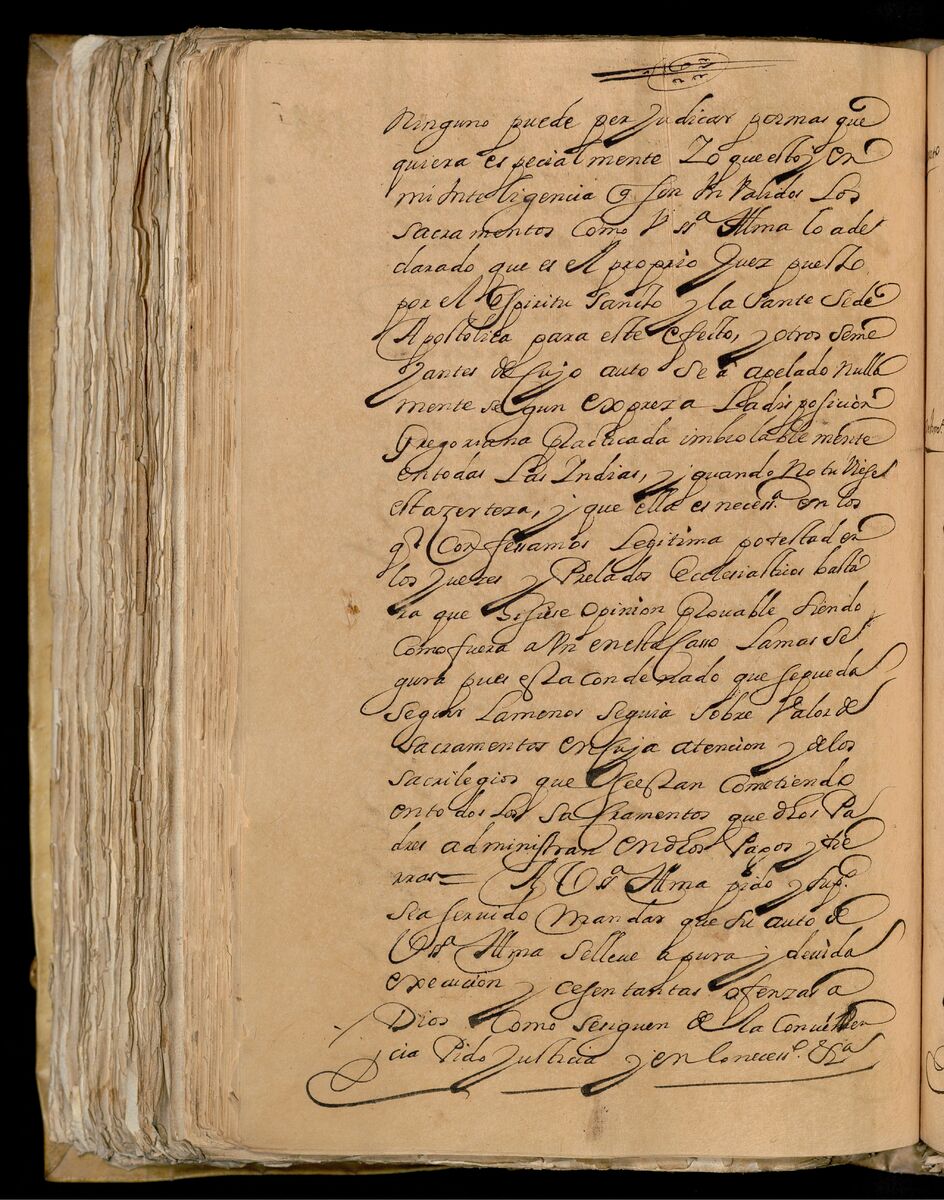 Ninguno puede per Judicar por mas que
quiera especialmente Lo que estoy en
mi Inteligencia q̃ son InValidos Los
Sacramentos como V Sª Illma lo a de
clarado que es el proprio Juez puesto
por el Espiritu Sancto y la Sante Sede
Apostolica para este efecto, y otros seme
Jantes de Cujo auto se à apelado nulla
mente segun expreza La disposicion
Gregoriana Practicada imbiolablemente
en todas Las Indias, y quando No tuViese
esta zerteza, y que ella es necessª en los
q̃ Confessamos Legitima potestad en
los Juezes y Prelados Ecclesiasticos basta
ra que Ubiese opinion Prouable siendo
como fuera aVn en este Casso La mas se
gura pues esta condenado que se pueda
seguir La menos segura sobre Valor de
Sacramentos en Cuja atencion y de los
sacrilegios que se estan cometiendo
en todos Los Sacramentos que dhos Pa
dres administran en dhos Pagos y tie
rras = A V Sª Illma pido y supco
sea seruido mandar que su auto de
V Sª Illma se lleue a pura y deuida
execucion y cesen tantas ofenzas a
Dios como se siguen de la
cia Pido Justicia y en lo necessº &ª